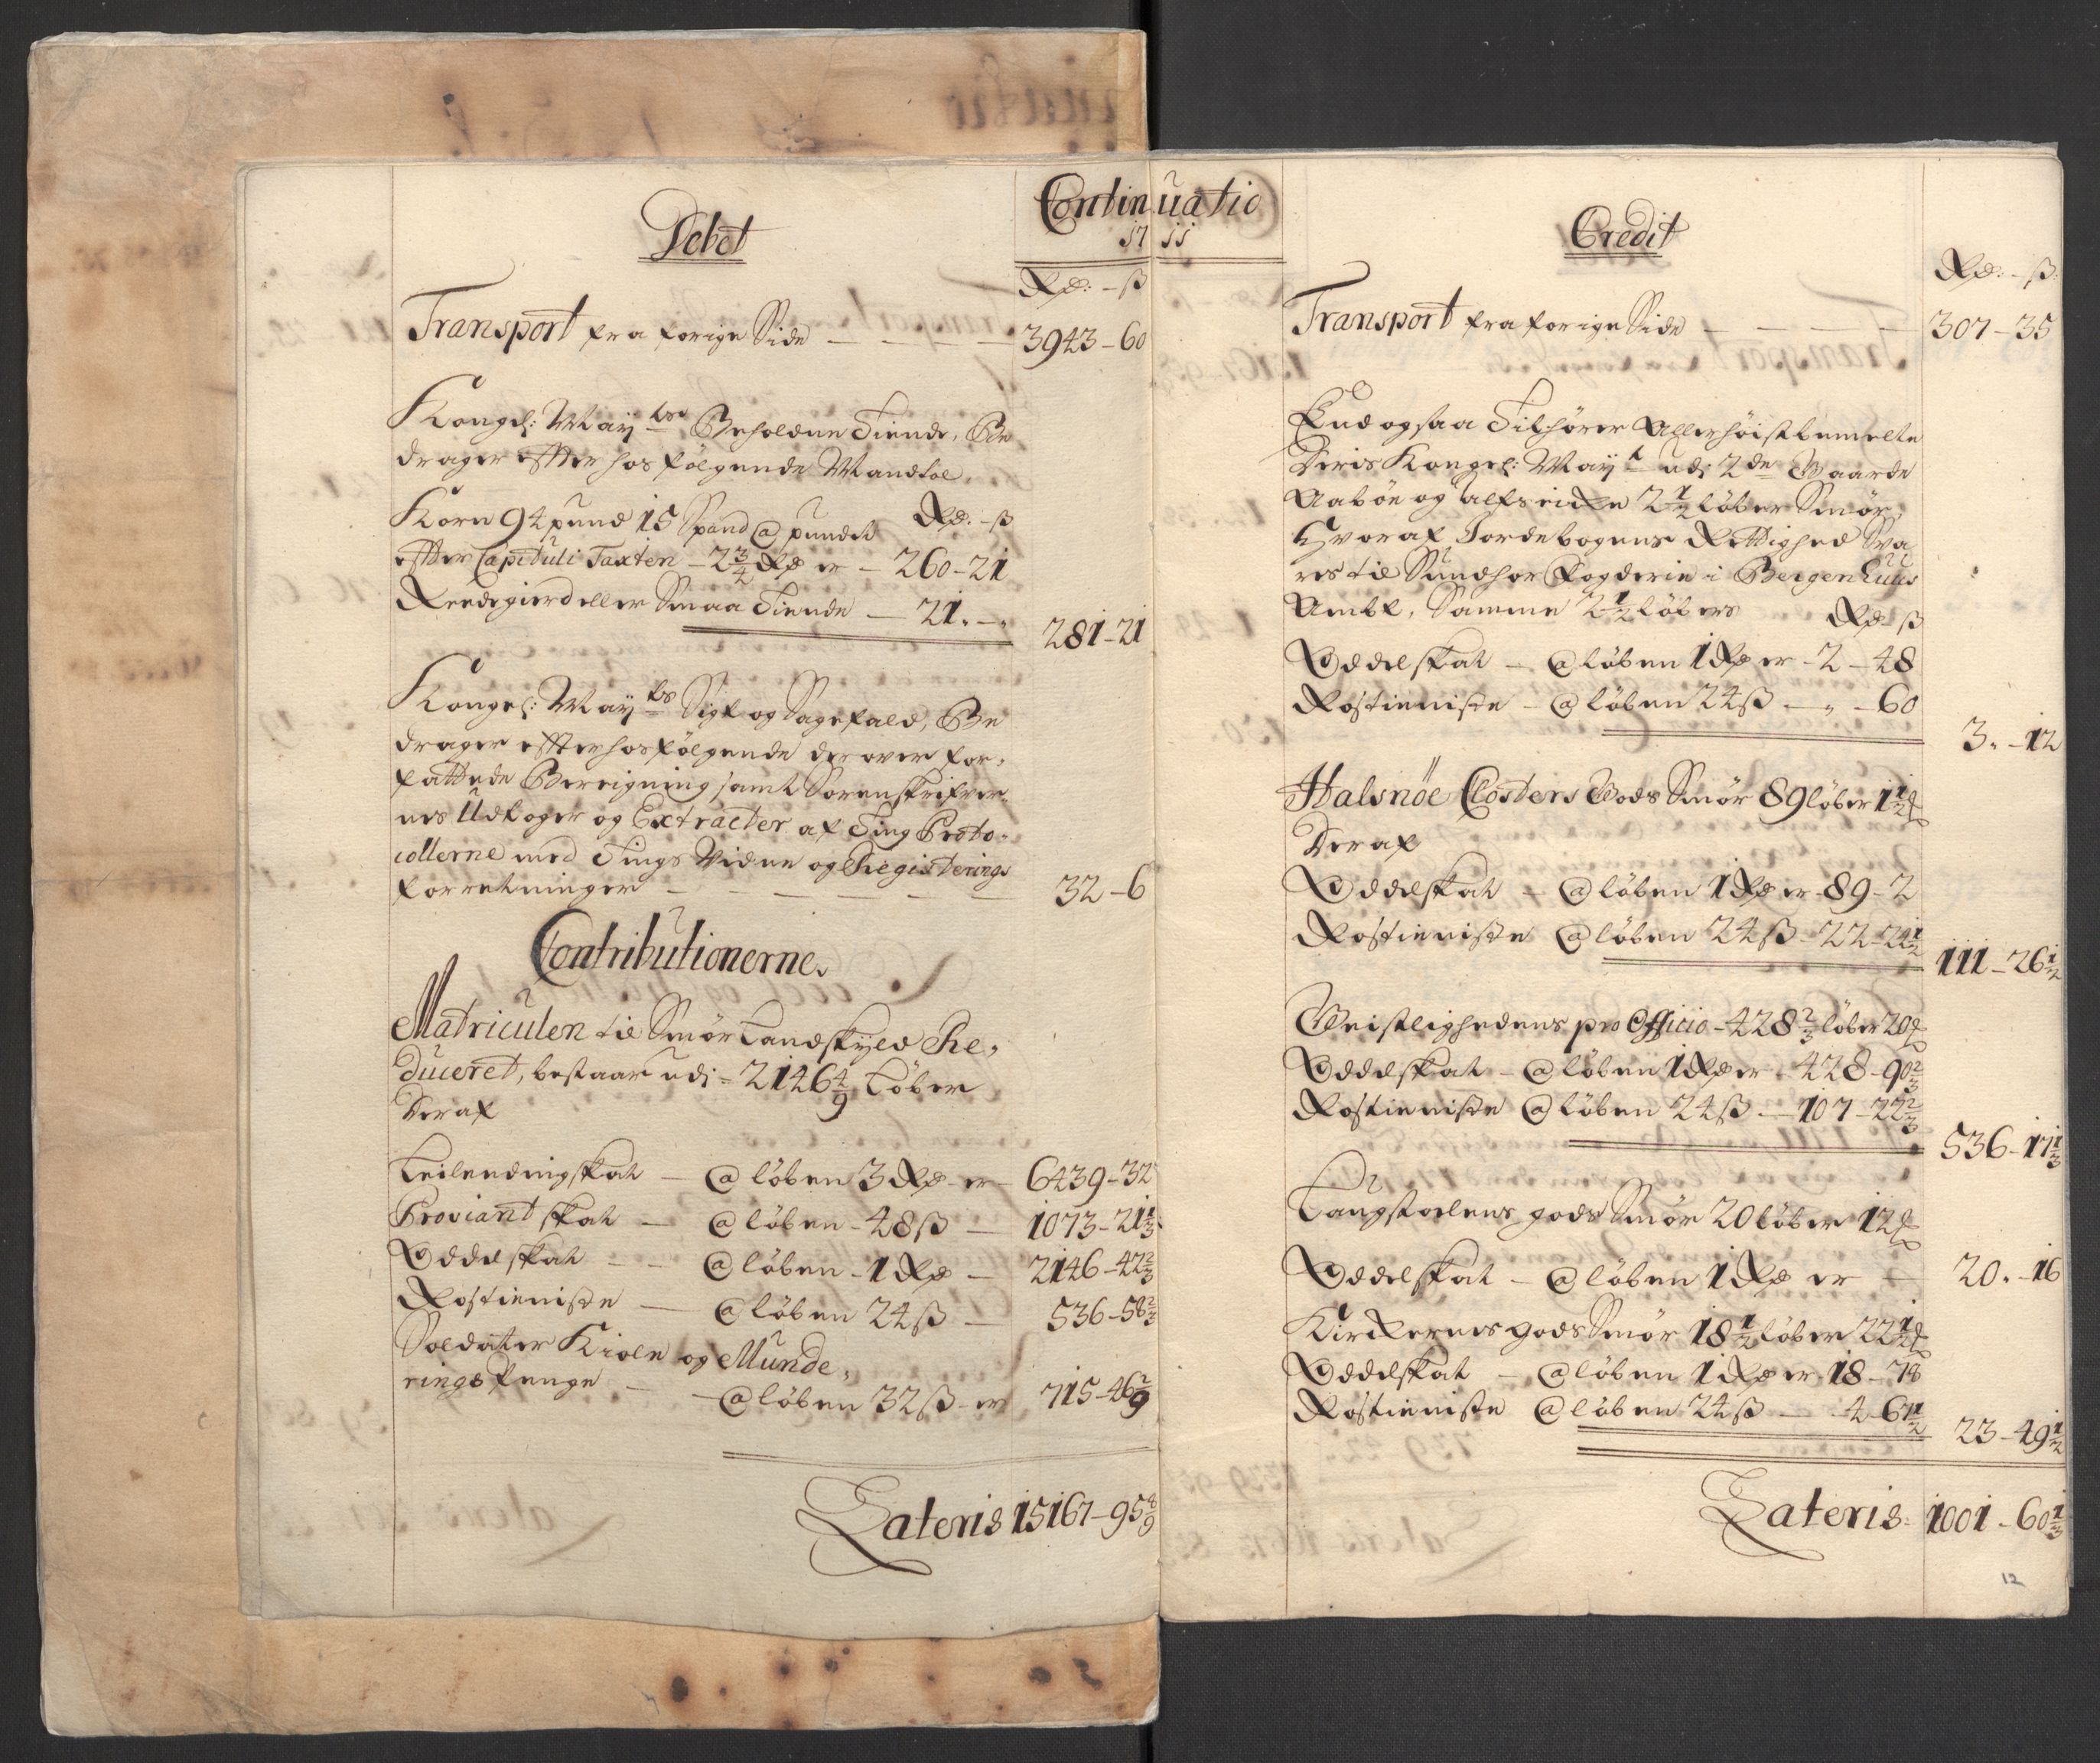 Continuatio
1711
Debet
Rd: - ß
Transport fra forige Side — — — — 3943 - 60
Kongel: Maytz Beholdne Tiende, Be
drager efter hos følgende Mandtal,
Korn 94 pund 15 Spand @ pundet Rd. - ß
efter Capituli Taxten - 2 3/4 Rd er - 260 - 21
Reedegierd eller Smaa Tiende — 21. -
281 - 21
Kongel: Maytz Sigt og Sagefald, Be
drager efter hosfølgende derover for,
fattede Bereigning samt Sorenskrifver,
nes Udtoger og Extracter af Ting Proto,
collerne med Tings Vidne og Registerings
forretninger — — — — — 32 - 6
Contributionerne.
Matriculen til Smør Landskyld Re,
duceret, bestaar udj = 2146 4/9 Løber
Deraf
Leilendingskat — @ løben 3 Rd - er - 6439 - 32
Proviantskat — @ løben - 48 ß — 1073 - 21 1/3
Oddelskat — - @ løben - 1 Rd — 2146 - 42 2/3
Rostieniste — @ løben 24 ß — 536 - 58 2/3
Soldater Kiole og Munde,
rings Penge — - @ løben 32 ß - er 715 - 46 2/9
Lateris 15167 - 95 8/9
Credit
Rd: - ß:
Transport fra forige Side — — — — 307 - 35
End ogsaa Tilhører Allerhøistbemelte
Deris Kongel: Mayt udj 2de Gaarde
Aabøe og Alfseide 2 1/2 løber Smør,
Hvoraf Jordebogens Rettighed Sva
res til Sundhor Fogderie i BergenHuus
Ambt, Samme 2 1/2 løbers Rd ß
Oddelskat — @ løben 1 Rd er - 2 - 48
Rostieniste - @ løben 24 ß — „ - 60
3. - 12
Halsnöe Closters Gods Smør 89 løber 1 1/2 ℔
Deraf
Oddelskat — @ løben 1 Rd er - 89 - 2
Rostieniste @ løben 24 ß - 22 - 24 1/2
111 - 26 1/2
Geistlighedens pro Officio - 428 2/3 løber 20 ℔
Oddelskat - @ løben 1 Rd er . 428 - 90 2/3
Rostieniste @ løben 24 ß — 107 - 22 2/3
536 - 17 1/3
Laugstolens gods Smør 20 løber 12 ℔
Oddelskat — @ løben 1 Rd er — 20. - 16
Kirckernes gods Smør 18 1/2 løber 22 1/2 ℔
Oddelskat — @ løben 1 Rd er 18 - 78
Rostieniste @ løben 24 ß — 4 - 67 1/2
23 - 49 1/2
Lateris - 1001 - 60 1/3
12